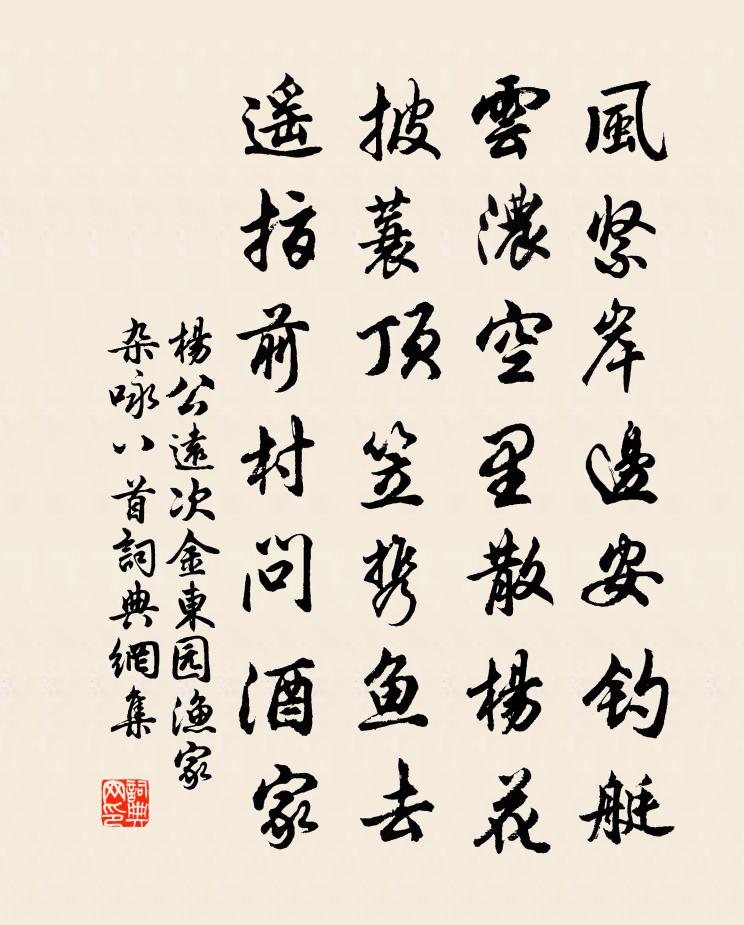 風紧岸邊安钓艇
雲濃空里散楊花
披蓑顶笠携鱼去
遥指前村問酒家
楊公遠次金東园漁家
杂咏八首詞典網集
詞典
网印